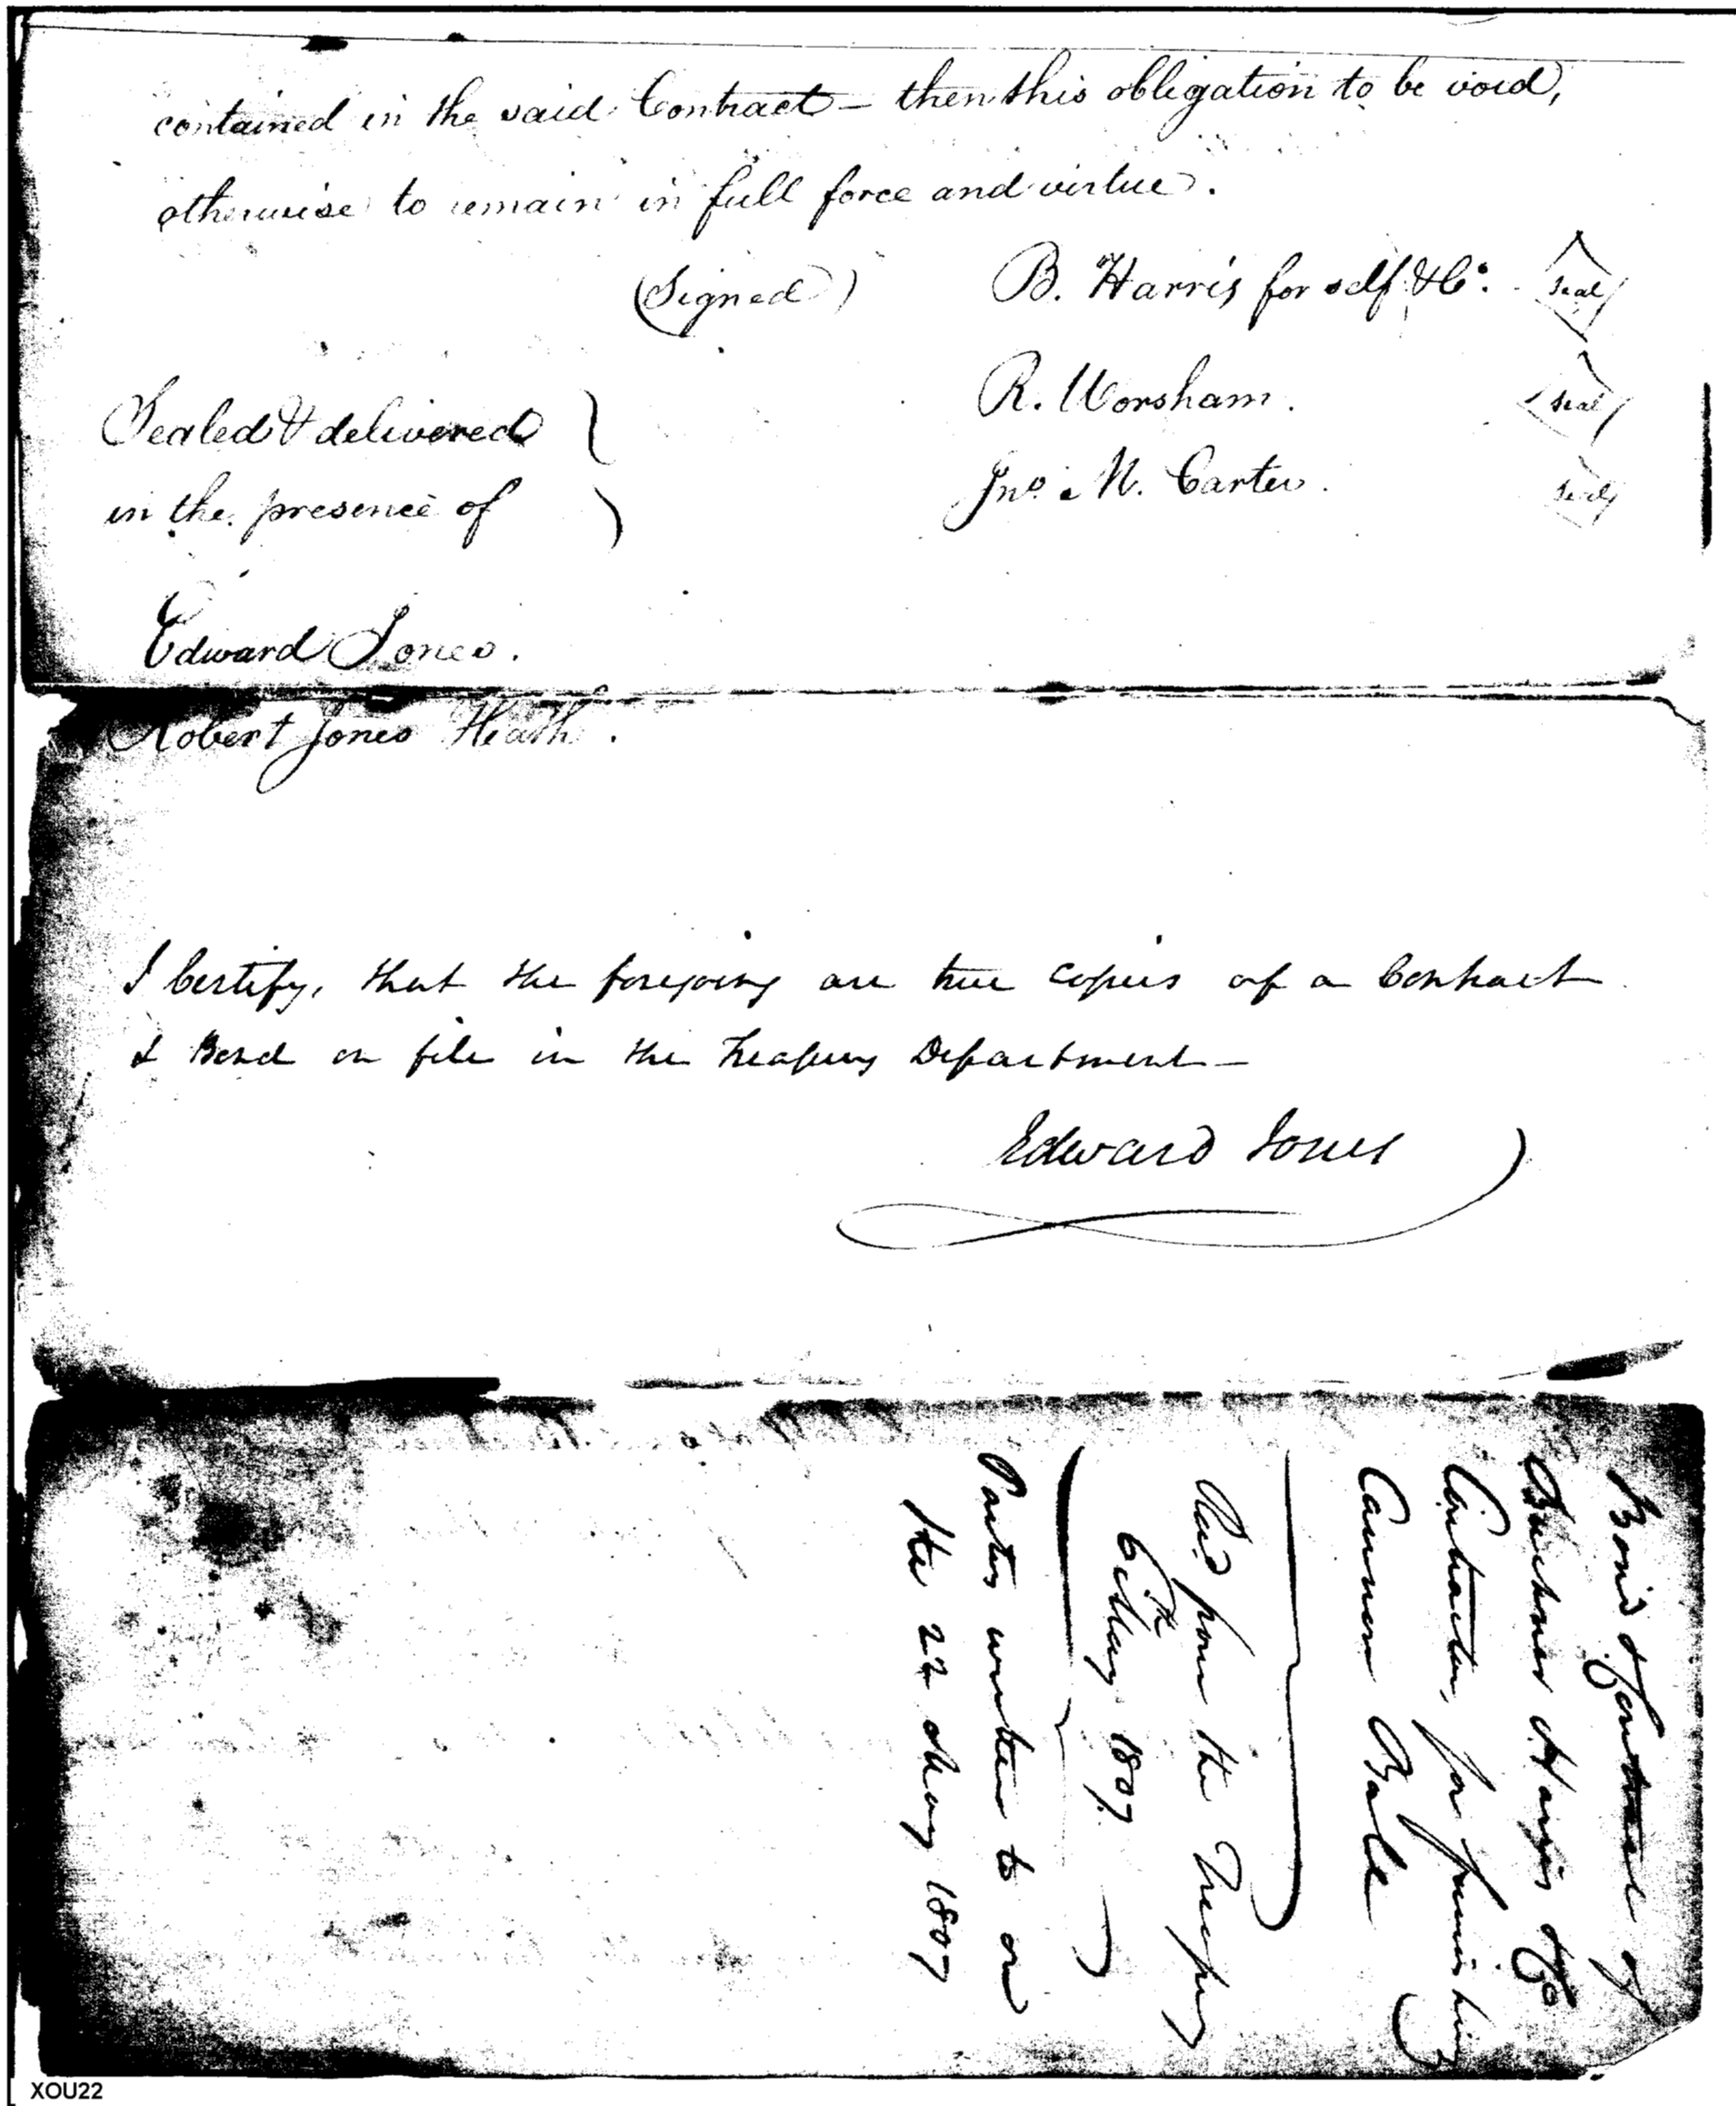 contained in the said Contract — then this obligation to be void,
otherwise to remain in full force and virtue.
(Signed) B. Harris for self & Co. seal
R. Worsham. seal
Sealed & delivered
in the presence of
Jno. N. Carter. seal
Edward Jones.
Robert Jones Heath.
I Certify, that the foregoing are true copies of a Contract
& Bond on file in the Treasury Department —
Edward Jones
Bond & Contract of
Harris & Co
Contractors, for furnishing
Cannon Balls
Recd from the Treasury
6th May 1807.
Parties written to on
the 22 May 1807
XOU22